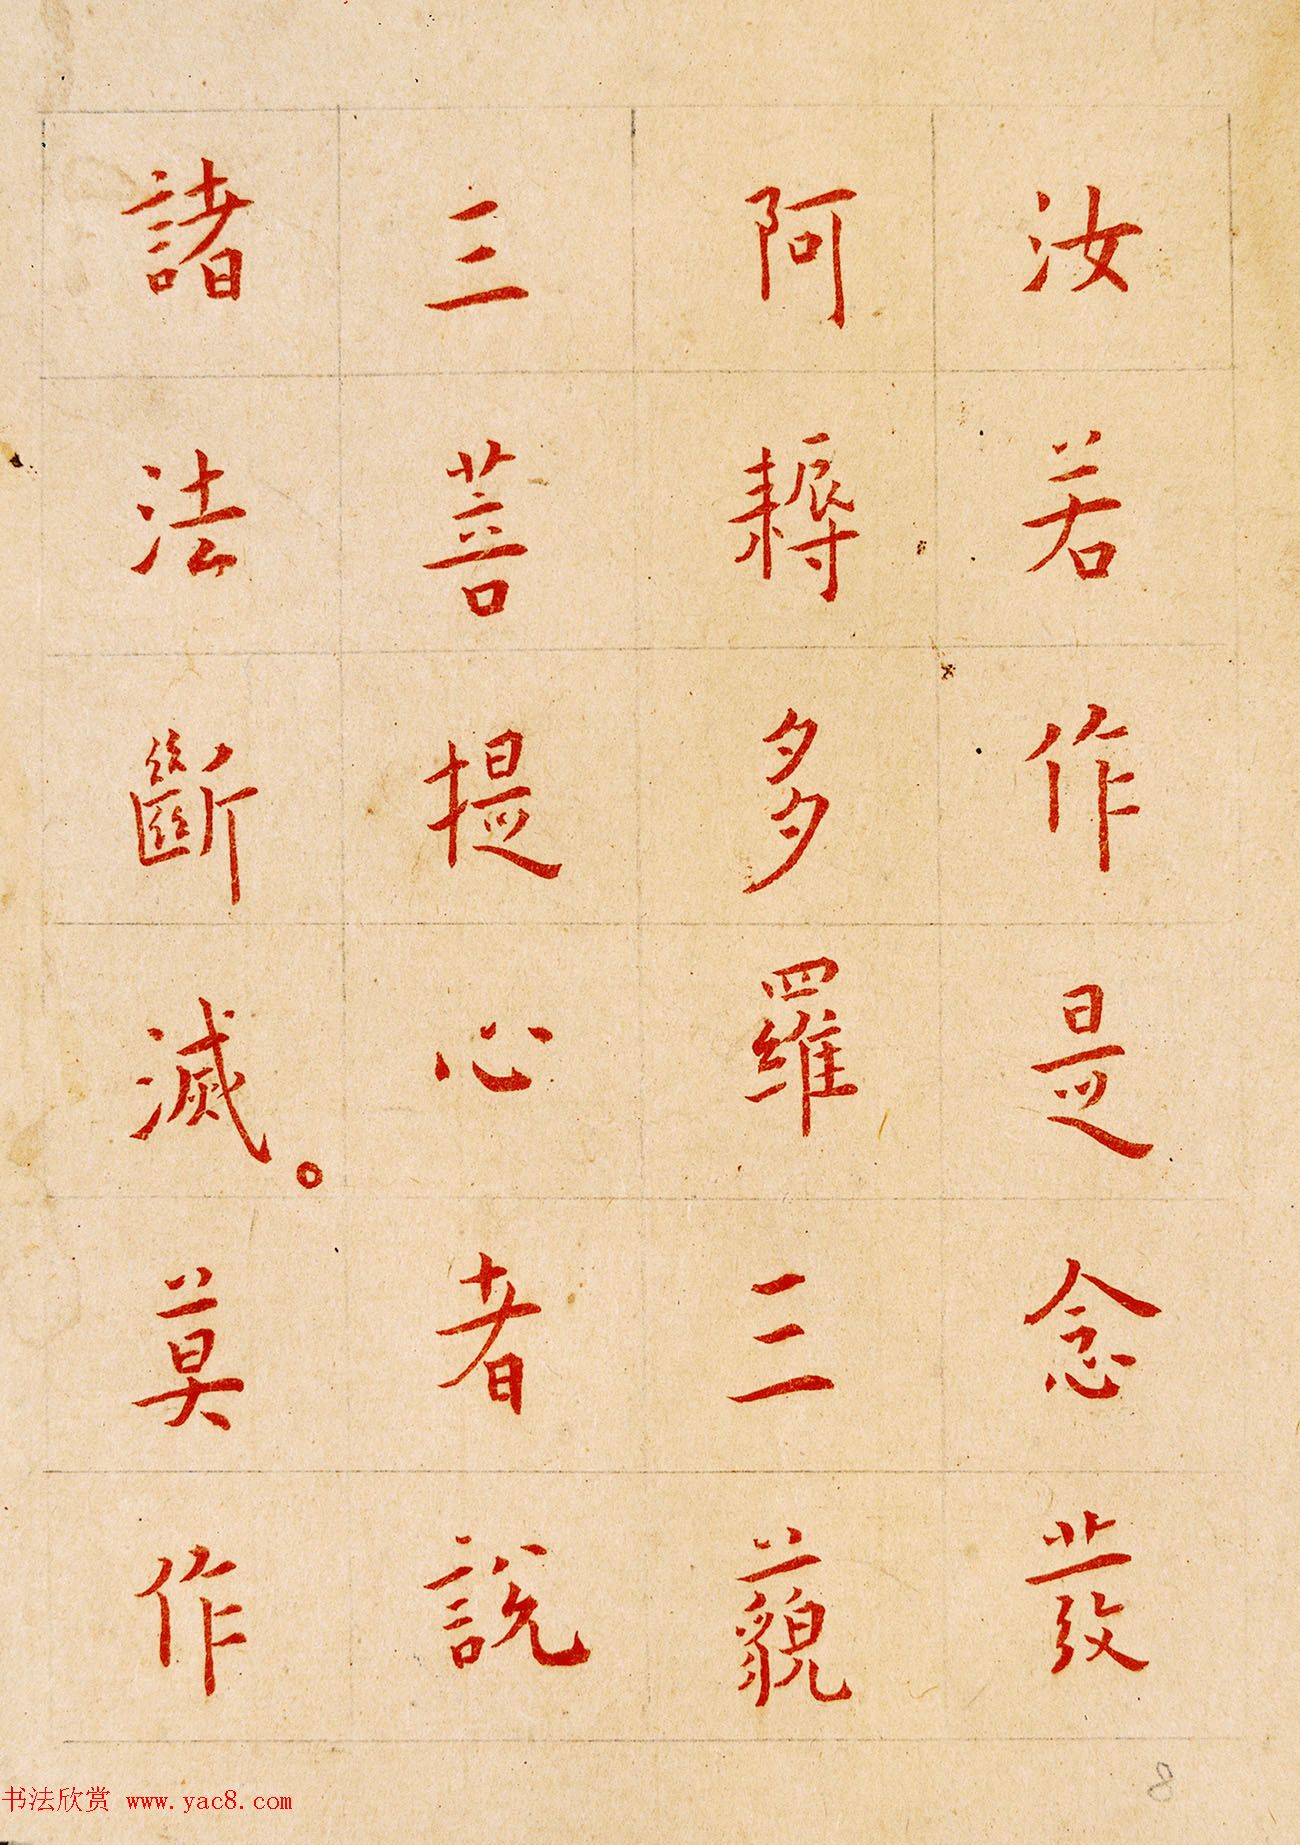 汝若作是念發
阿耨多羅三藐
三菩提心者說
諸法斷滅。莫作
8
书法欣赏 www.yac8.com